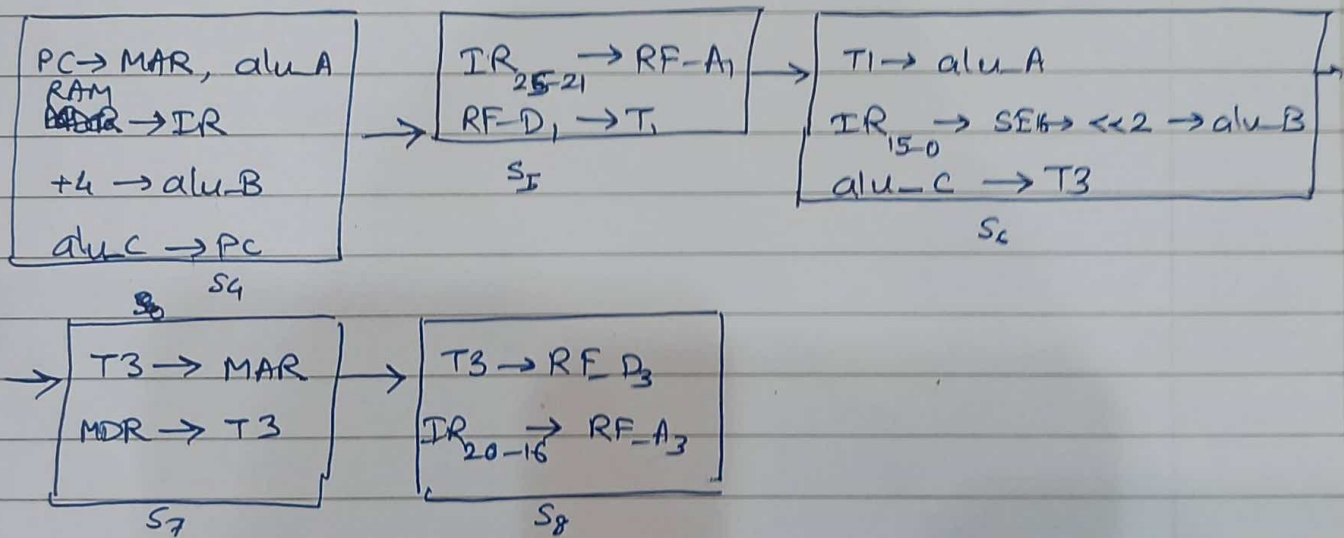 PC → MAR, alu_A
RAM → IR
+4 → alu_B
alu_C → PC
S4
IR25-21 → RF-A1
RF-D1 → T1
SI
T1 → alu_A
IR15-0 → SE16 → <<2 → alu_B
alu_C → T3
S6
T3 → MAR
MDR → T3
S7
T3 → RF_D3
IR20-16 → RF_A3
S8